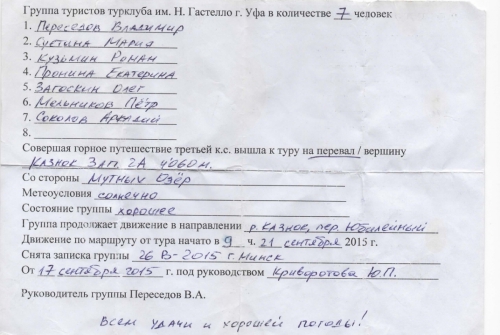 Группа туристов турклуба им. Н. Гастелло г. Уфа в количестве 7 человек
1. Переседов Владимир
2. Суетина Мария
3. Кузьмин Роман
4. Пронина Екатерина
5. Загоскин Олег
6. Мельников Пётр
7. Соколов Аркадий
8.
Совершая горное путешествие третьей к.с. вышла к туру на перевал / вершину
Казнок Зап. 2А 4060 м.
Со стороны Мутных Озёр
Метеоусловия солнечно
Состояние группы хорошее
Группа продолжает движение в направлении р. Казнок, пер. Юбилейный
Движение по маршруту от тура начато в 9 ч. 21 сентября 2015 г.
Снята записка группы 2015 г. Минск
От 17 сентября 2015 г. под руководством Криворотова Ю.П.
Руководитель группы Переседов В.А.
Всем удачи и хорошей погоды!